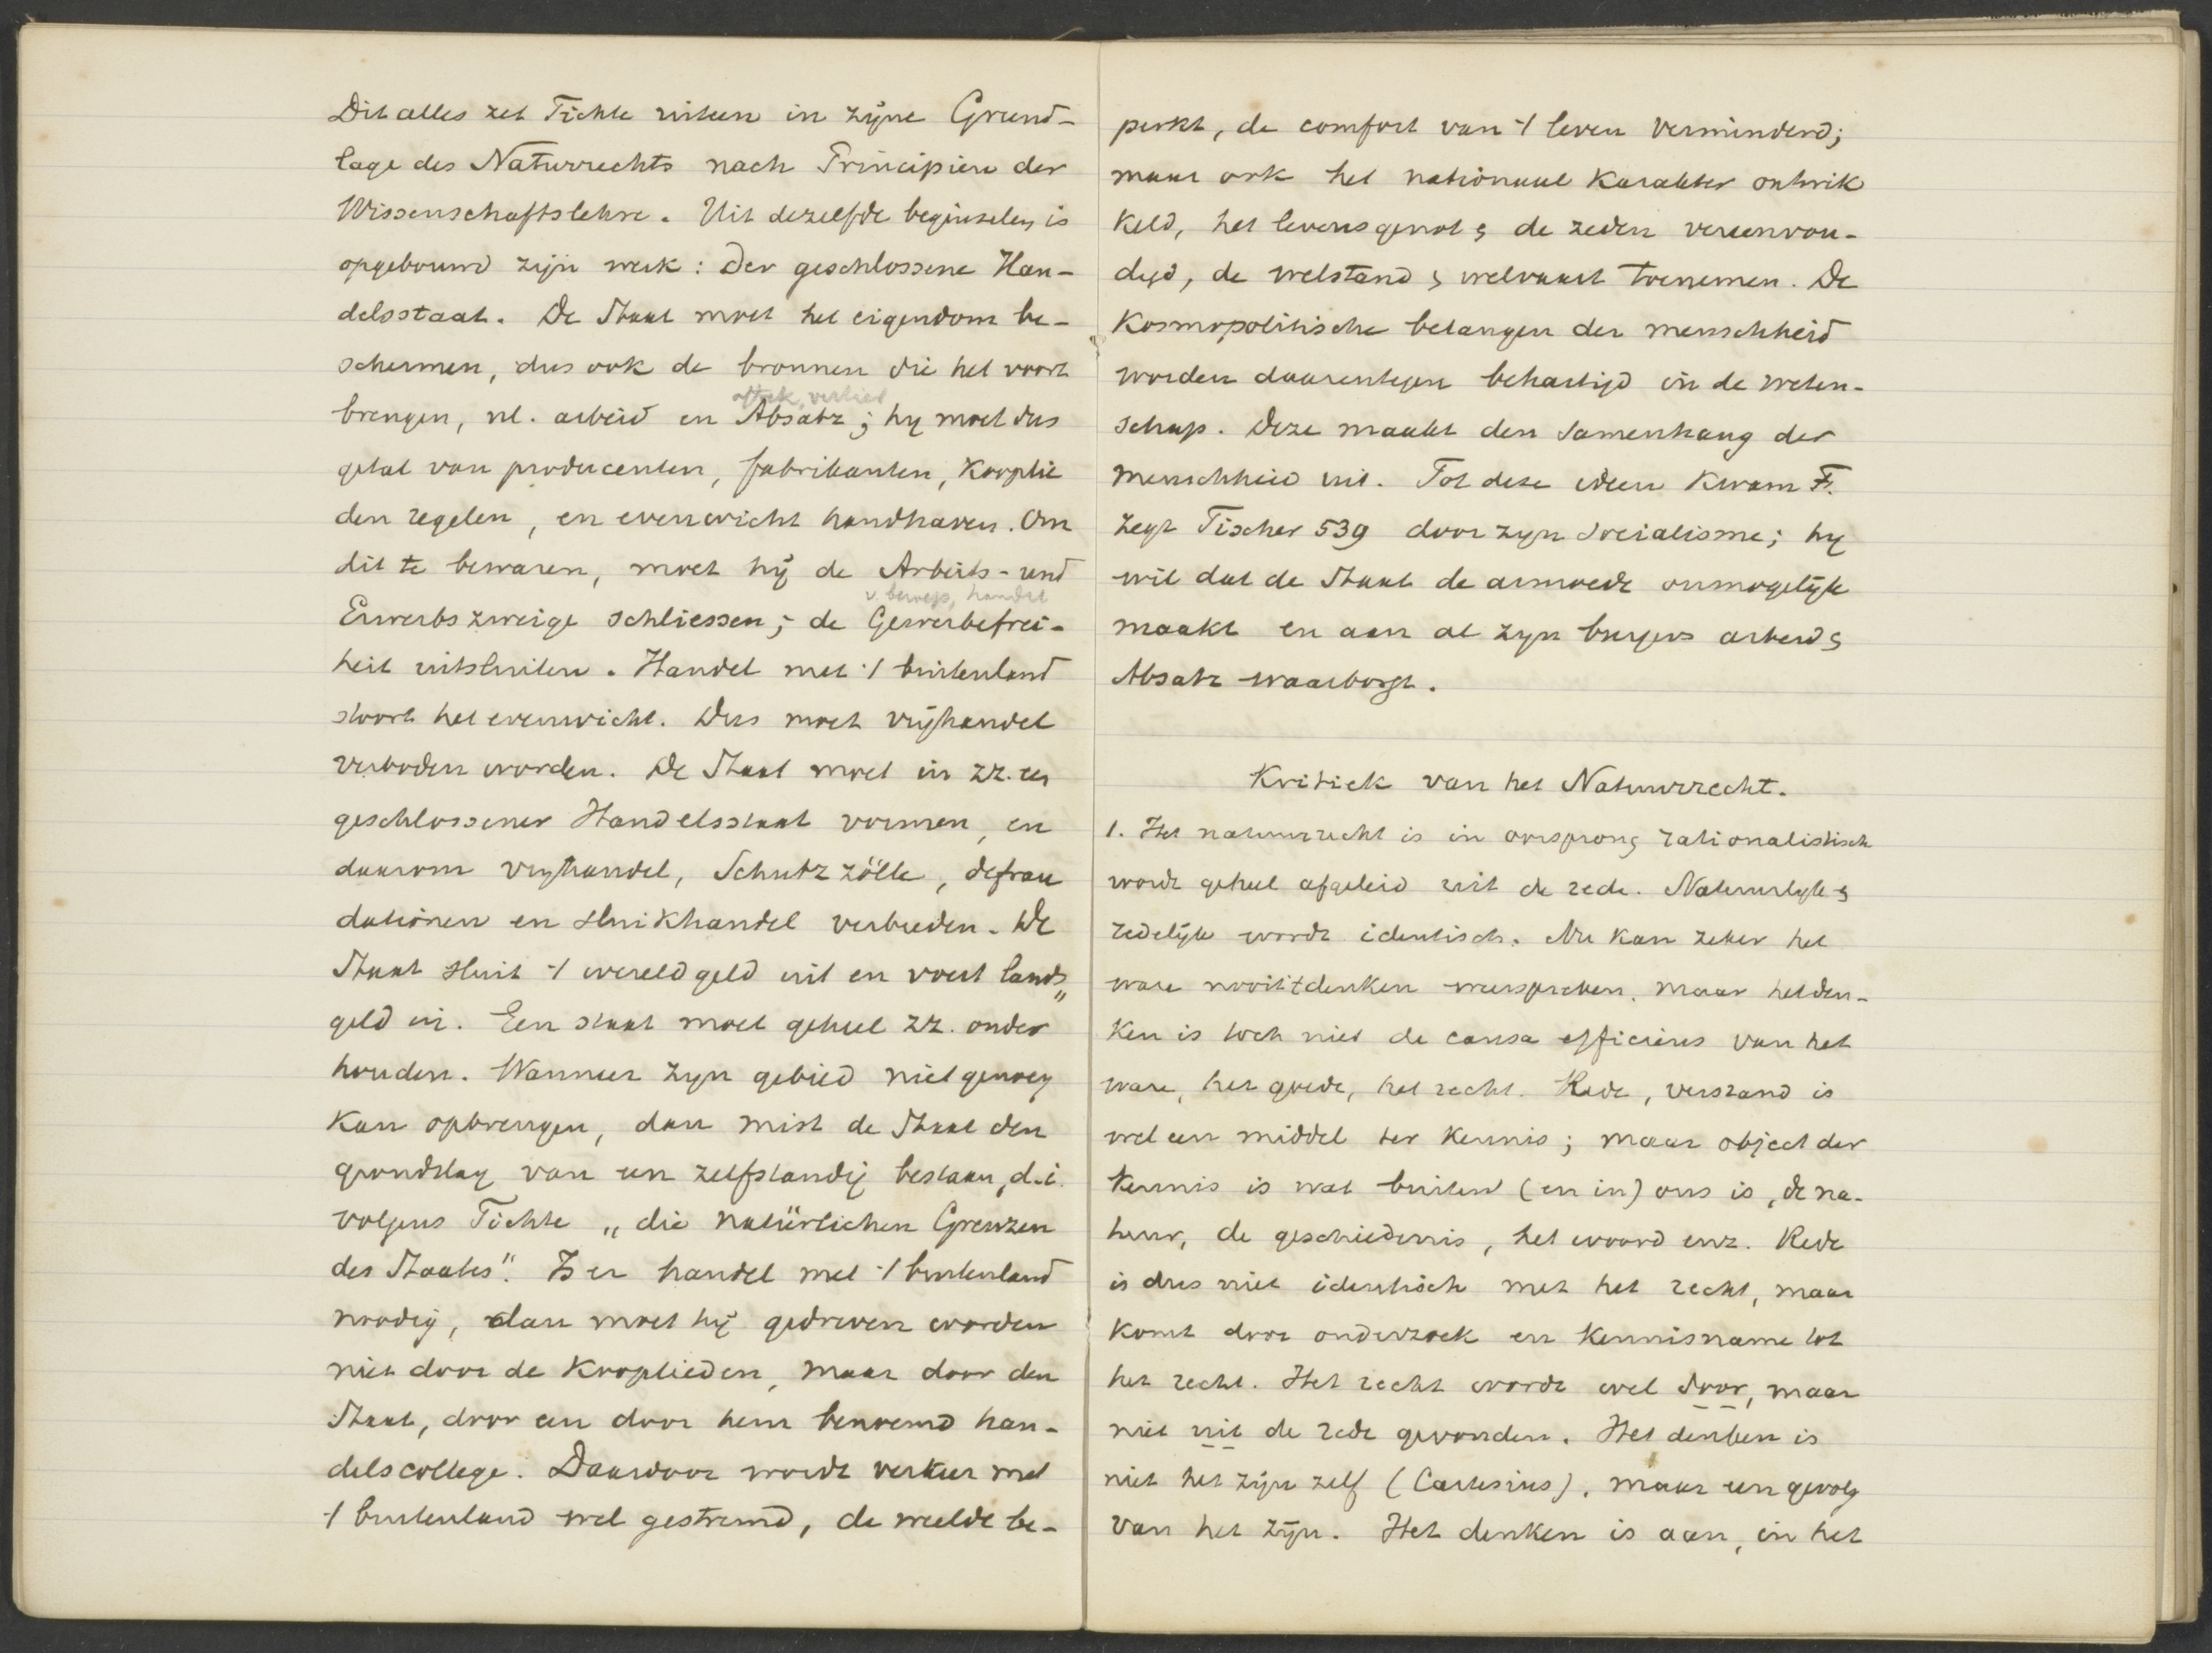 Dit alles zet Fichte uiteen in zijne Grund-
lage des Naturrechts nach Principien der
Wissenschaftslehre. Uit dezelfde beginselen is
opgebouwd zijn werk: Der geschlossene Han-
delsstaat. De Staat moet het eigendom be-
schermen, dus ook de bronnen die het voort
aftrek, vertier
brengen, nl. arbeid en Absatz; hy moet dus
getal van producenten, fabrikanten, Kooplie
den regelen, en evenwicht handhaven. Om
dit te bewaren, moet hij de Arbeits- und
v. beroep, handel
Erwerbszweige schliessen; de Gewerbefrei-
heit uitsluiten. Handel met 't buitenland
stoort het evenwicht. Dus moet vrijhandel
verboden worden. De Staat moet in zz. een
geschlossener Handelsstaat vormen, en
daarom vryhandel, Schutzzölle, defrau
dationen en sluikhandel verbieden. De
Staat sluit 't wereldgeld uit en voert lands„
geld in. Een staat moet geheel zz. onder
houden. Wanneer zyn gebied niet genoeg
kan opbrengen, dan mist de Staat den
grondslag van een zelfstandig bestaan, d.i.
volgens Fichte „die natürlichen Grenzen
des Staates". Is er handel met 't buitenland
noodig, dan moet hij gedreven worden
niet door de Kooplieden, maar door den
Staat, door een door hem benoemd han-
delscollege. Daardoor wordt verkeer met
't buitenland wel gestremd, de weelde be-
perkt, de comfort van 't leven verminderd;
maar ook het nationaal Karakter ontwik
keld, het levensgenot & de zeden vereenvou-
digd, de welstand & welvaart toenemen. De
Kosmopolitische belangen der menschheid
worden daarentegen behartigd in de weten-
schap. Deze maakt den samenhang der
menschheid uit. Tot deze ideen kwam F.
zegt Fischer 539 door zyn Socialisme; hy
wil dat de Staat de armoede onmogelijk
maakt en aan al zyn burgers arbeid &
Absatz waarborgt.
Kritiek van het Natuurrecht.
1. Het natuurrecht is in oorsprong rationalistisch
wordt geheel afgeleid uit de rede. Natuurlyk &
redelijk wordt identisch. Nu kan zeker het
ware nooit 't denken weerspreken. maar het den-
ken is toch niet de causa efficiens van het
ware, het goede, het recht. Rede, verstand is
wel een middel ter kennis; maar object der
kennis is wat buiten (en in) ons is, de na-
tuur, de geschiedenis, het woord enz. Rede
is dus niet identisch met het recht, maar
komt door onderzoek en kennisname tot
het recht. Het recht wordt wel door, maar
niet uit de rede gevonden. Het denken is
niet het zijn zelf (Cartesius), maar een gevolg
van het zijn. Het denken is aan, in het